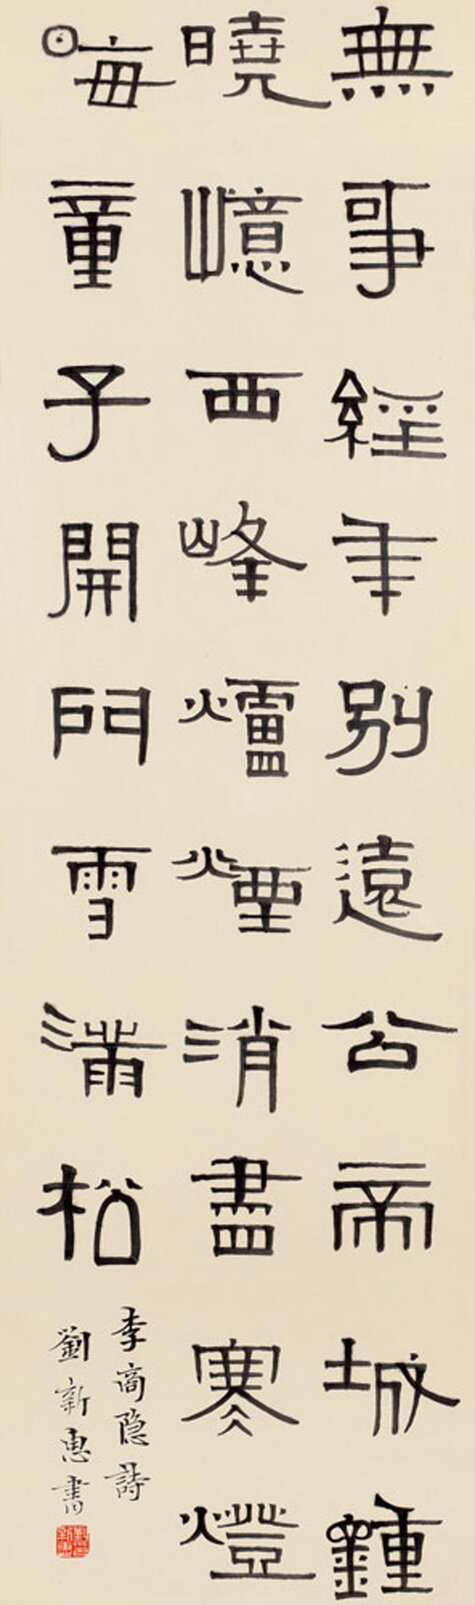 無事經年別遠公帝城鍾
曉憶西峰爐煙消盡寒燈
晦童子開門雪滿松
李商隐詩
劉新惠書